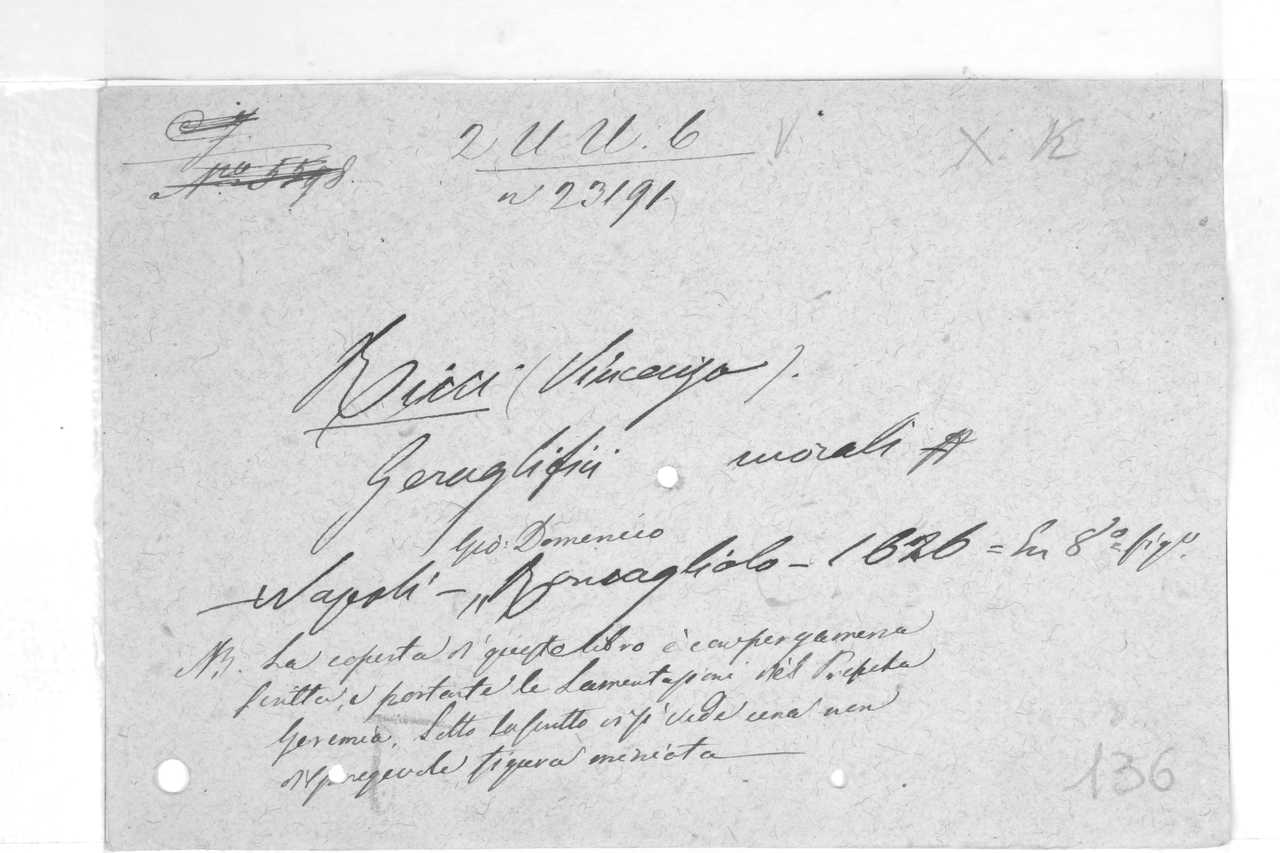 2 U U. 6 V X. K
N.ro 5598
n 23191
Ricci (Vincenzo).
Geroglifici morali #
Gio: Domenico
Napoli - „Roncagliolo - 1626 = In 8º = fig.º
NB. La coperta di questo libro è con pergamena
scritta, e portante le Lamentazioni del Profeta
Geremia. Sotto lo scritto vi si vede una non
dispregevole figura miniata
136